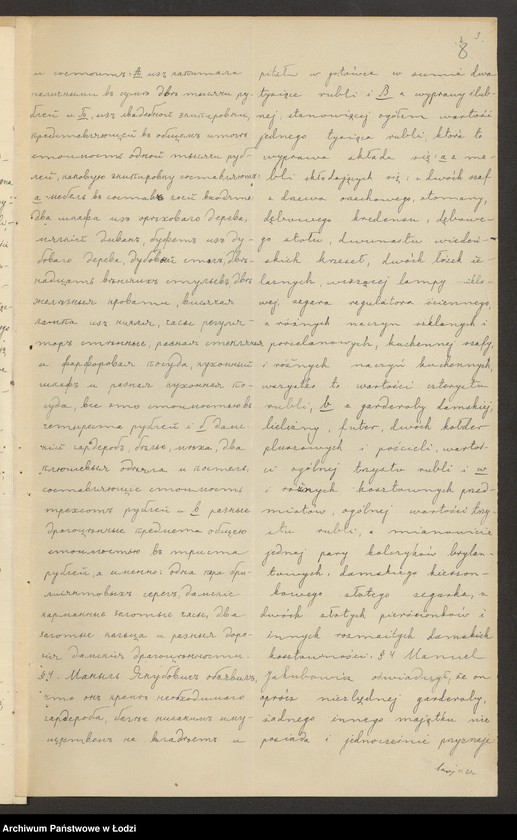 3
8
и состоитъ: А изъ капитала
наличными въ суммѣ двѣ тысячи ру-
блей и Б, изъ свадебной экипировки,
представляющей въ общемъ итогѣ
стоимость одной тысячи руб-
лей, каковую экипировку составляютъ:
а мебель въ составъ коей входятъ:
два шкафа изъ орѣховаго дерева,
мягкій диванъ, буфетъ изъ ду-
боваго дерева, дубовый столъ, двѣ-
надцать вѣнскихъ стульевъ, двѣ
желѣзныя кровати, висячая
лампа изъ никеля, часы регуля-
торъ стѣнные, разная стеклянная
и фарфоровая посуда, кухонный
шкафъ и разная кухонная по-
суда, все это стоимостью въ
четыреста рублей и б дамс-
кій гардеробъ, бѣлье, мѣха, два
плюшевыя одѣяла и постель,
составляющіе стоимость
трехсотъ рублей и в разные
драгоцѣнные предметы общею
стоимостью въ триста
рублей, а именно: одна пара бри-
лліантовыхъ серегъ, дамскіе
карманные золотые часы, два
золотые кольца и разныя доро-
гія дамскія драгоцѣнности.
§ 4. Манель Якубовичъ объявилъ,
что онъ кромѣ необходимаго
гардероба, болѣе никакимъ иму-
ществомъ не владѣетъ и
pitału w gotówce w sumie dwa
tysiące rubli i B z wyprawy ślub-
nej, stanowiącej ogółem wartość
jednego tysiąca rubli, która to
wyprawa składa się: a z me-
bli składających się: z dwóch szaf
z drzewa orzechowego, otomany,
dębowego kredensu, dębowe-
go stołu, dwunastu wiedeń-
skich krzeseł, dwóch łóżek że-
laznych, wiszącej lampy niklo-
wej, zegara regulatora ściennego,
z różnych naczyń szklanych i
porcelanowych, kuchennej szafy,
i różnych naczyń kuchennych,
wszystko to wartości czterystu
rubli, b z garderoby damskiej,
bielizny, futer, dwóch kołder
pluszowych i pościeli, wartoś-
ci ogólnej trzystu rubli i w
i różnych kosztownych przed-
miotów, ogólnej wartości trzy-
stu rubli, a mianowicie
jednej pary kolczyków brylan-
towych, damskiego kieszon-
kowego złotego zegarka, z
dwóch złotych pierścionków i
innych rozmaitych damskich
kosztowności. § 4 Manuel
Jakubowicz oświadczył, że on
oprócz niezbędnej garderoby,
żadnego innego majątku nie
posiada i jednocześnie przyznaje
Archiwum Państwowe w Łodzi